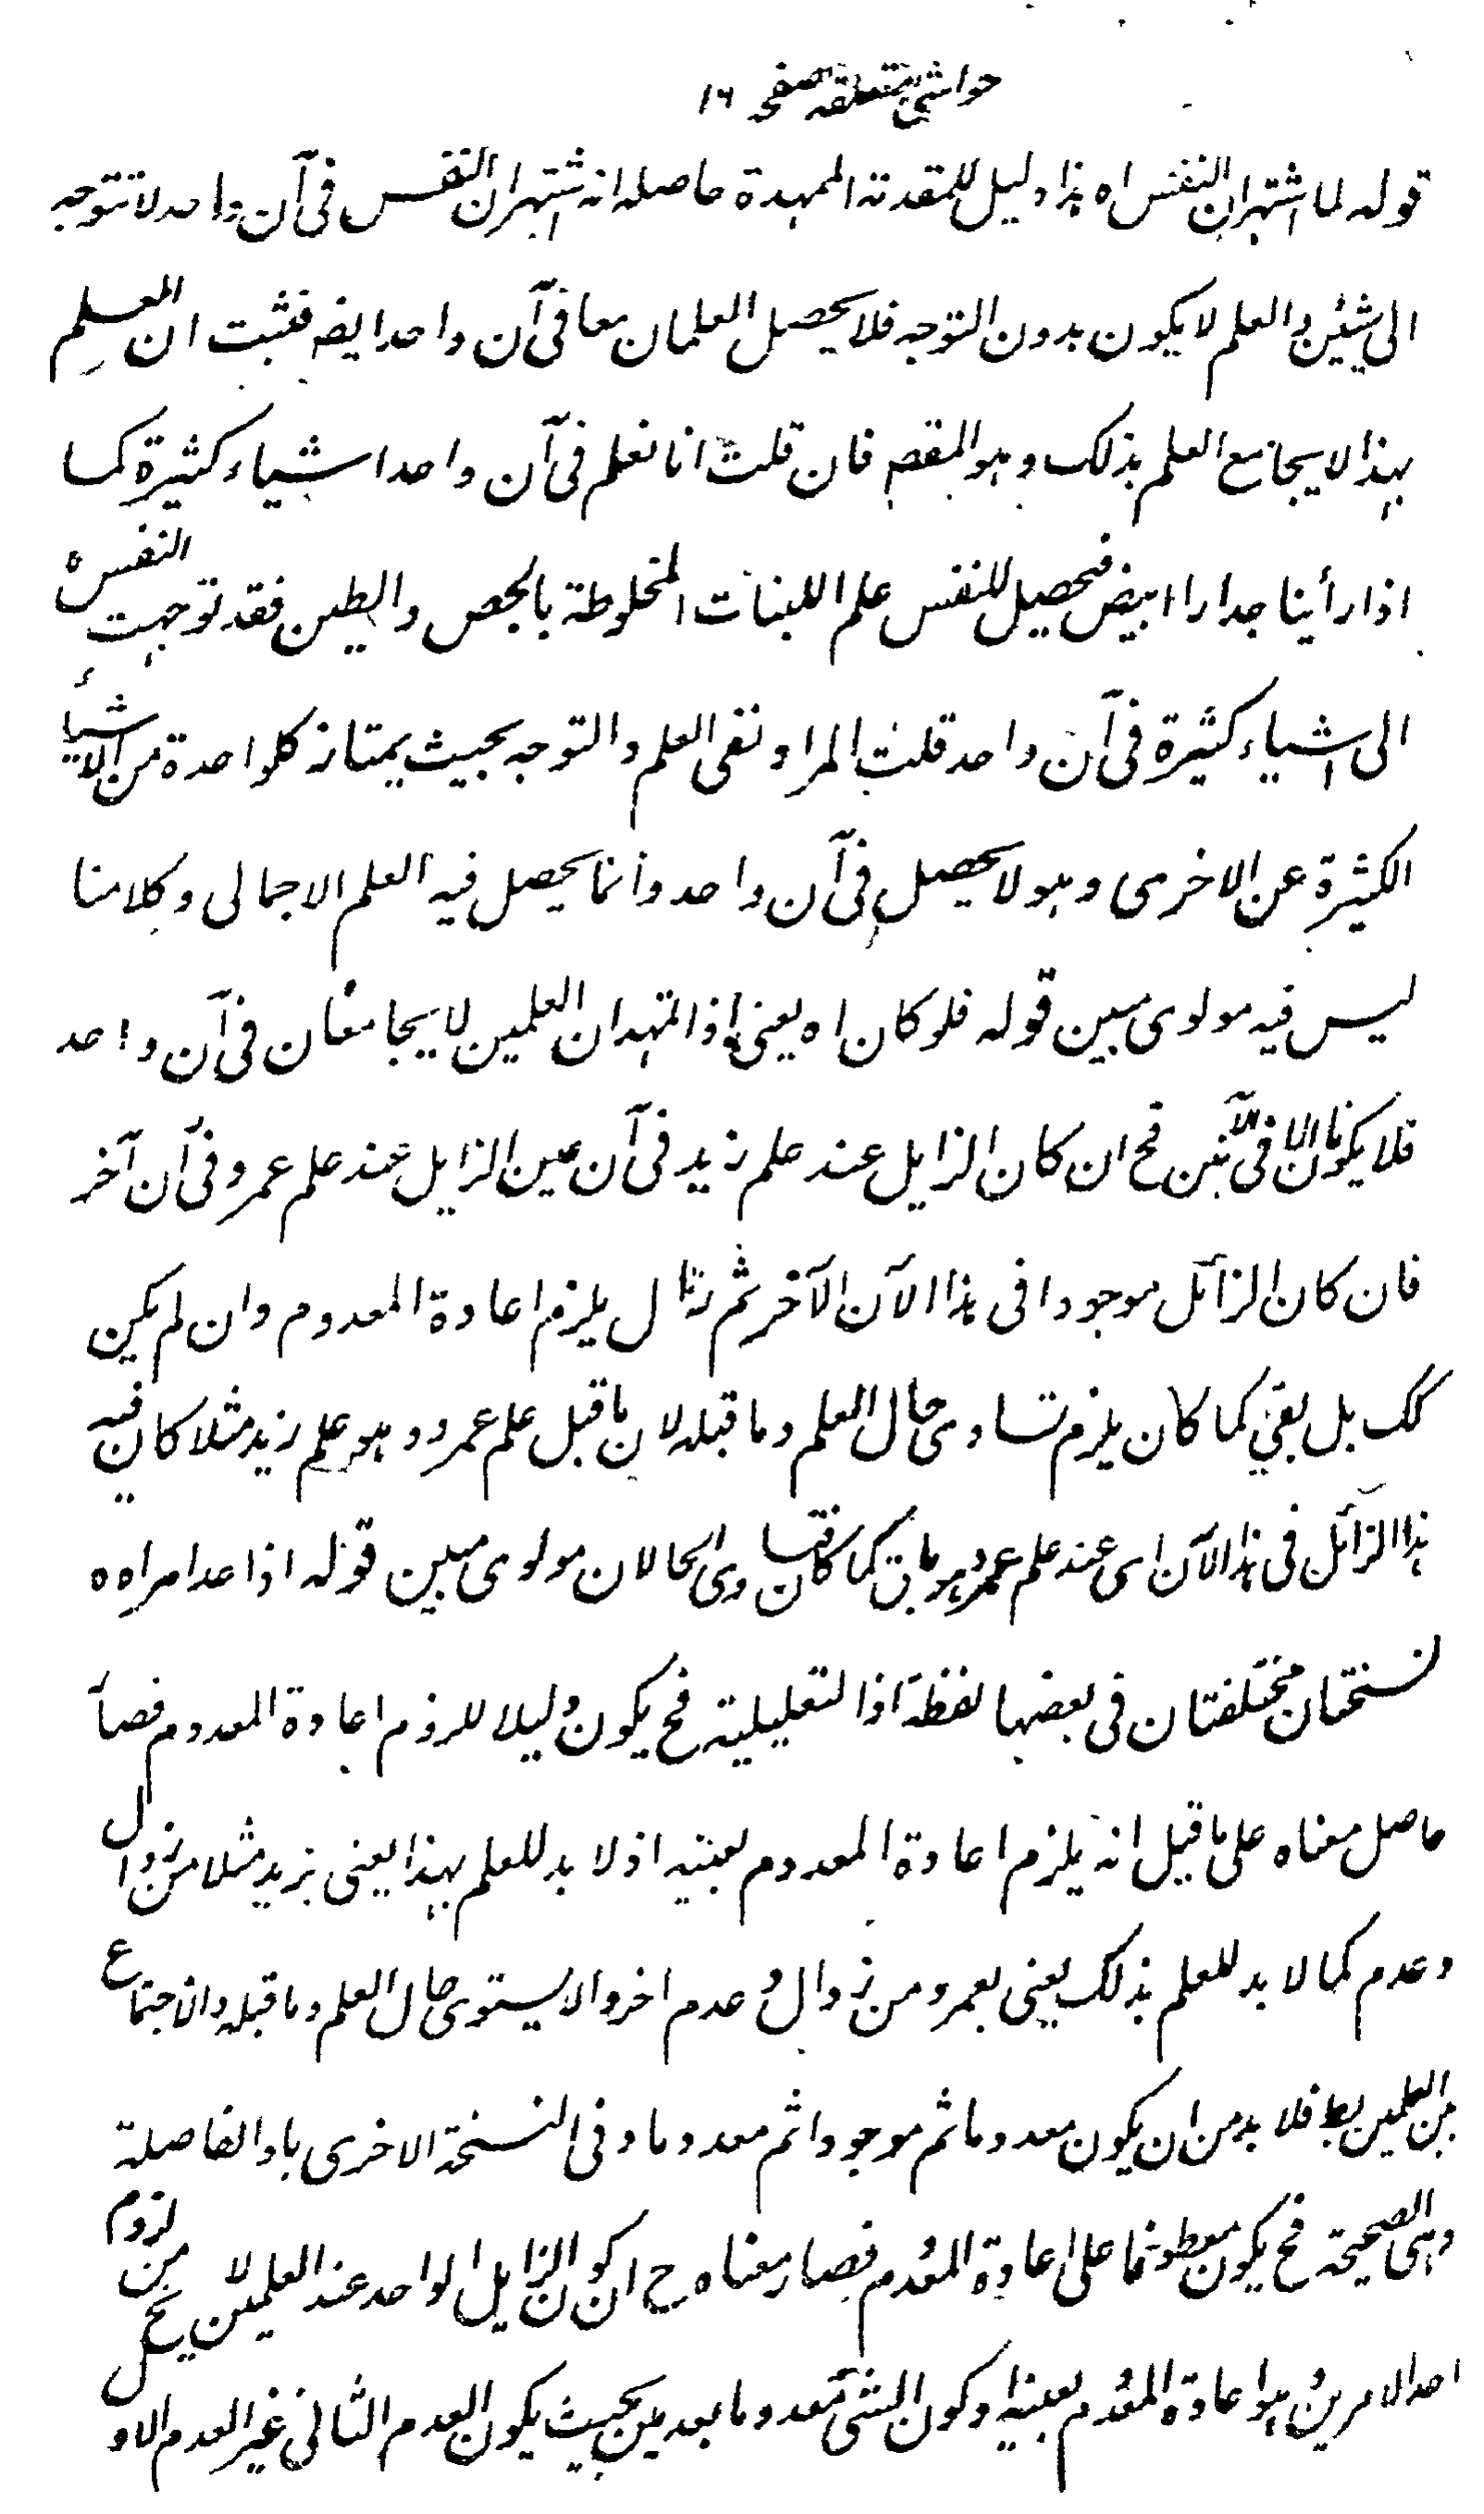 حواشی متعلقہ صفحہ ١٦
قوله لما اشتهر ان النفس اه هذا دليل للمقدمة الممهدة حاصله انه اشتهر ان النفس فى آن واحد لا تتوجه
الى شيئين والعلم لا يكون بدون التوجه فلا يحصل العلمان معا فى آن واحد ايضه فثبت ان العلم
بهذا لا يجامع العلم بذلك وهو المقصه فان قلت انا نعلم فى آن واحد اشياء كثيرة كما
اذا رأينا جدارا ابيض فيحصل للنفس علم اللبنات المخلوطة بالجص والطين فقد توجهت النفس
الى اشياء كثيرة فى آن واحد قلت المراد نفى العلم والتوجه بحيث يمتاز كلواحدة من الاشياء
الكثيرة عن الاخرى وهو لا يحصل فى آن واحد وانما يحصل فيه العلم الاجمالى وكلامنا
ليس فيه مولوى مبين قوله فلو كان اه يعنى اذا تمهد ان العلمين لا يجامعان فى آن واحد
فلا يكونان الا فى الآنين فح ان كان الزايل عند علم زيد فى آن عين الزايل عند علم عمرو فى آن آخر
فان كان الزائل موجودا فى هذا الآن الآخر ثم زال يلزم اعادة المعدوم وان لم يكن
كك بل بقى كما كان يلزم تساوى حال العلم وما قبله لان ما قبل علم عمرو وهو علم زيد مثلا كان فيه
هذا الزائل فى هذا الآن اى عند علم عمرو هو باق كما كان فتساوى الحالان مولوى مبين قوله اذا عدا مراه ه
نسختان مختلفتان فى بعضها لفظة اذا لتعليلية فح يكون دليلا للزوم اعادة المعدوم فصار
حاصل معناه على ما قيل انه يلزم اعادة المعدوم بعينه اذ لا بد للعلم بهذا يعنى بزيد مثلا من زوال
وعدم كما لا بد للعلم بذلك يعنى بعمرو من زوال وعدم اخر والا يستوى حال العلم وما قبله والاجتماع
بين العلمين بط فلا بد من ان يكون معدوما ثم موجودا ثم معدوما وفى النسخة الاخرى باو الفاصلة
وهى الصحيحة فح يكون معطوفا على اعادة المعدوم فصار معناه ح ان كون الزايل الواحد عند العلمين لا يخل من لزوم
احد الامرين هو اعادة المعدوم بعينه او كون الشئ معدوما بعدمين بحيث يكون العدم الثانى غير العدم الاول